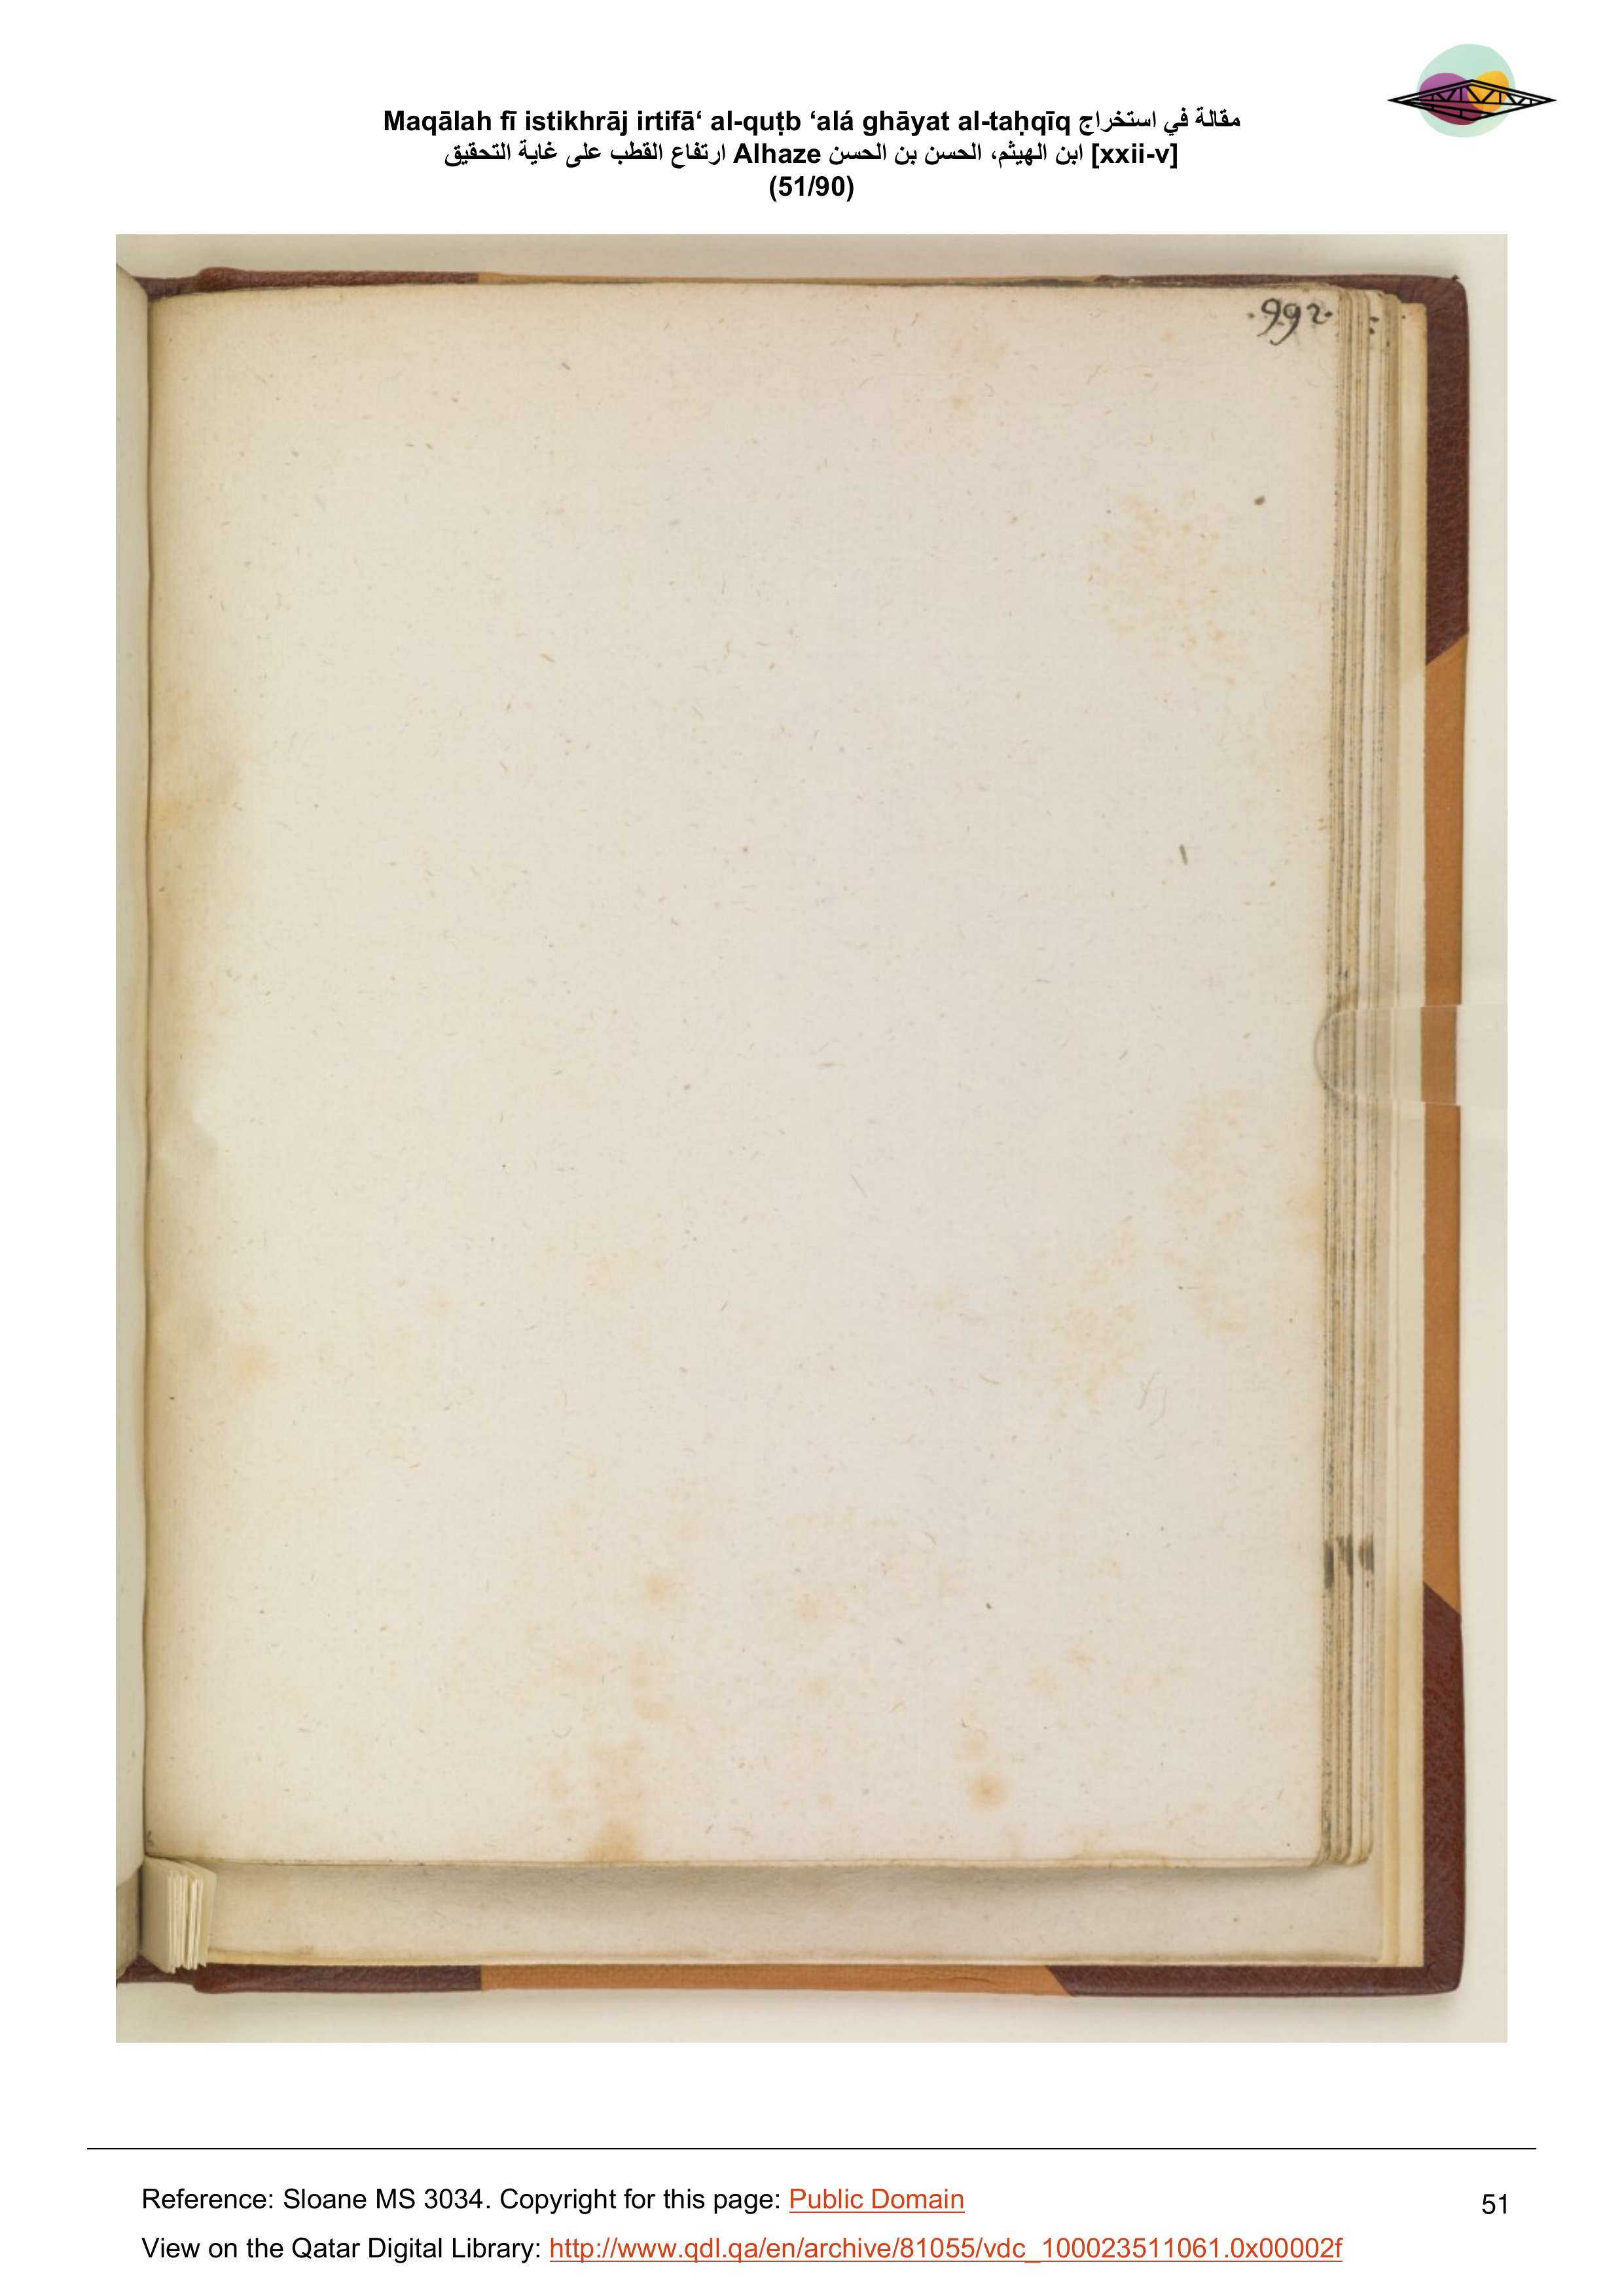 Maqālah fī istikhrāj irtifā‘ al-quṭb ‘alá ghāyat al-taḥqīq مقالة في استخراج
ارتفاع القطب على غاية التحقيق Alhaze ابن الهيثم، الحسن بن الحسن [xxii-v]
(51/90)
.992.
Reference: Sloane MS 3034. Copyright for this page: Public Domain
51
View on the Qatar Digital Library: http://www.qdl.qa/en/archive/81055/vdc_100023511061.0x00002f